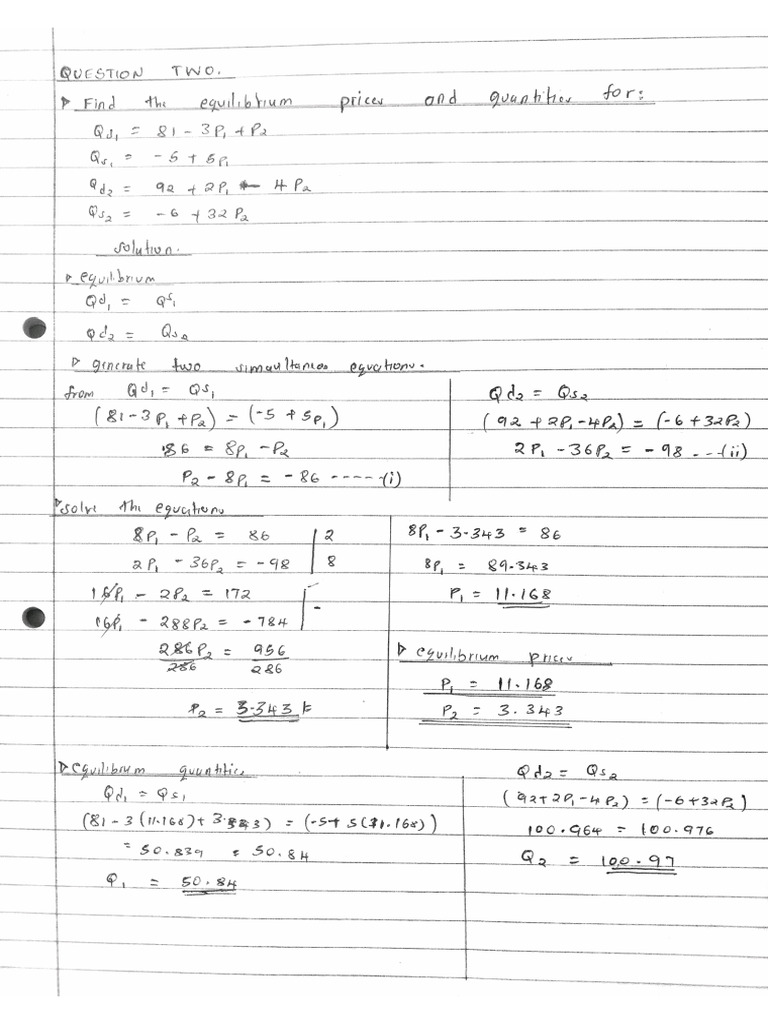 QUESTION TWO.
▷ Find the equilibrium prices and quantities for:
Qd₁ = 81 - 3P₁ + P₂
Qs₁ = -5 + 5P₁
Qd₂ = 92 + 2P₁ - 4P₂
Qs₂ = -6 + 32P₂
solution.
▷ equilibrium
Qd₁ = Qs₁
Qd₂ = Qs₂
▷ generate two simaultaneos equations.
from Qd₁ = Qs₁
(81 - 3P₁ + P₂) = (-5 + 5P₁)
86 = 8P₁ - P₂
P₂ - 8P₁ = -86 ----- (i)
Qd₂ = Qs₂
(92 + 2P₁ - 4P₂) = (-6 + 32P₂)
2P₁ - 36P₂ = -98 --- (ii)
▷ solve the equations
8P₁ - P₂ = 86 | 2
2P₁ - 36P₂ = -98 | 8
16P₁ - 2P₂ = 172
16P₁ - 288P₂ = -784 | -
286P₂ = 956
286 286
P₂ = 3.343
8P₁ - 3.343 = 86
8P₁ = 89.343
P₁ = 11.168
▷ equilibrium prices
P₁ = 11.168
P₂ = 3.343
▷ equilibrium quantities
Qd₁ = Qs₁
(81 - 3(11.168) + 3.343) = (-5 + 5(11.168))
= 50.839 = 50.84
Q₁ = 50.84
Qd₂ = Qs₂
(92 + 2P₁ - 4P₂) = (-6 + 32P₂)
100.964 = 100.976
Q₂ = 100.97